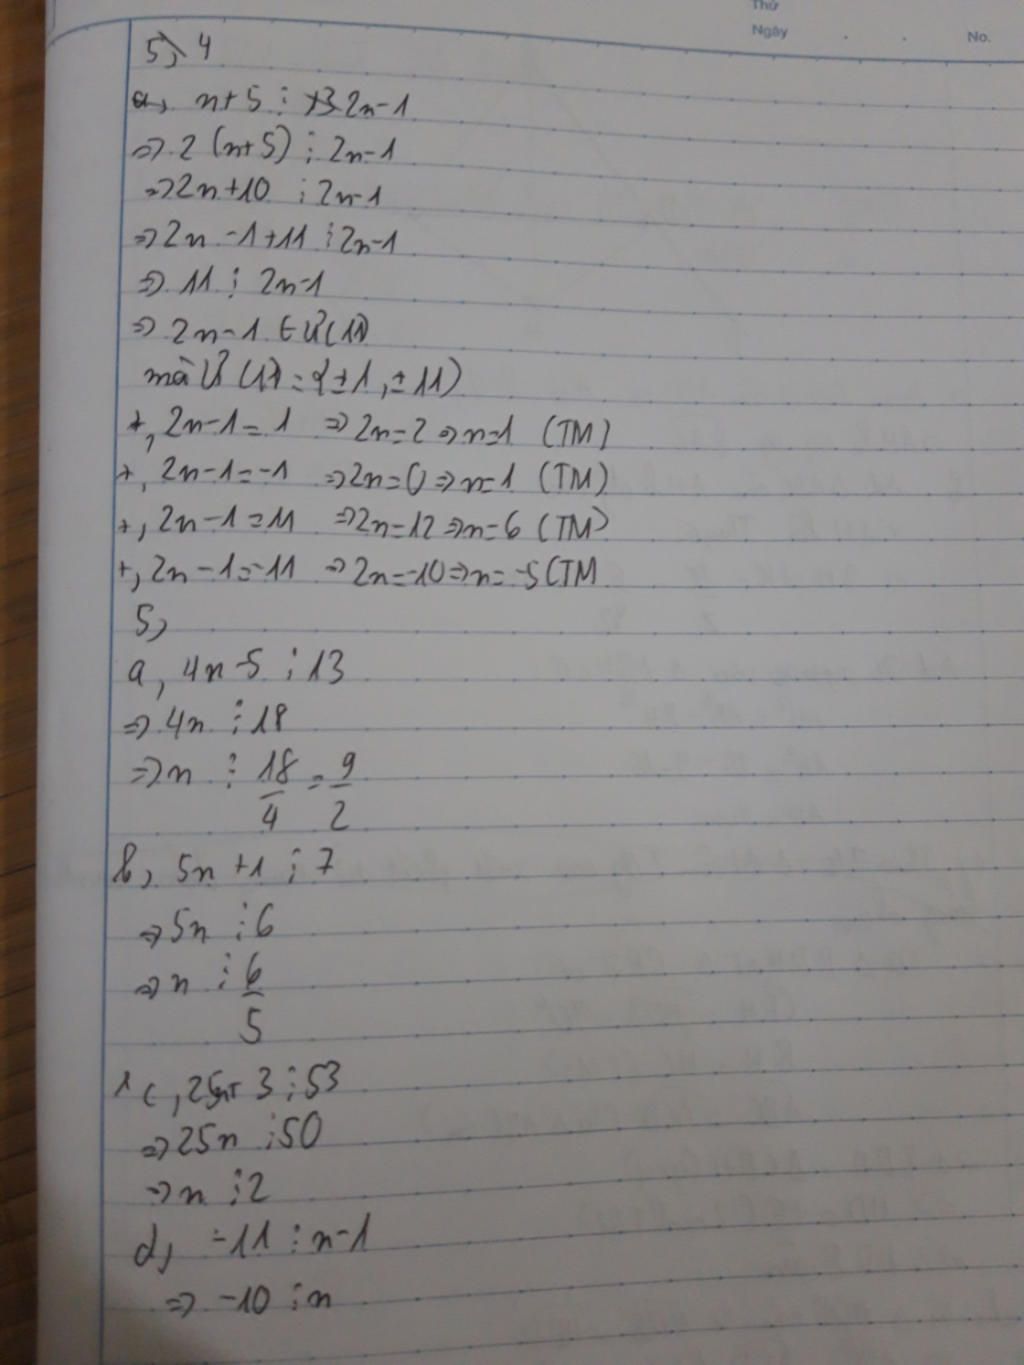 Thứ
Ngày . . No.
4
a, n+5 ⋮ 2n-1
=> 2 (n+5) ⋮ 2n-1
=> 2n+10 ⋮ 2n-1
=> 2n -1+11 ⋮ 2n-1
=> 11 ⋮ 2n-1
=> 2n-1 ∈ Ư(11)
mà Ư (11) = {±1, ±11)
+, 2n-1=1 => 2n=2 => n=1 (TM)
+, 2n-1=-1 => 2n=0 => n=1 (TM)
+, 2n-1=11 => 2n=12 => n=6 (TM)
+, 2n-1=-11 => 2n=-10 => n=-5 (TM
5,
a, 4n-5 ⋮ 13
=> 4n ⋮ 18
=> n ⋮ 18/4 = 9/2
b, 5n+1 ⋮ 7
=> 5n ⋮ 6
=> n ⋮ 6/5
c, 25n+3 ⋮ 53
=> 25n ⋮ 50
=> n ⋮ 2
d, -11 ⋮ n-1
=> -10 ⋮ n